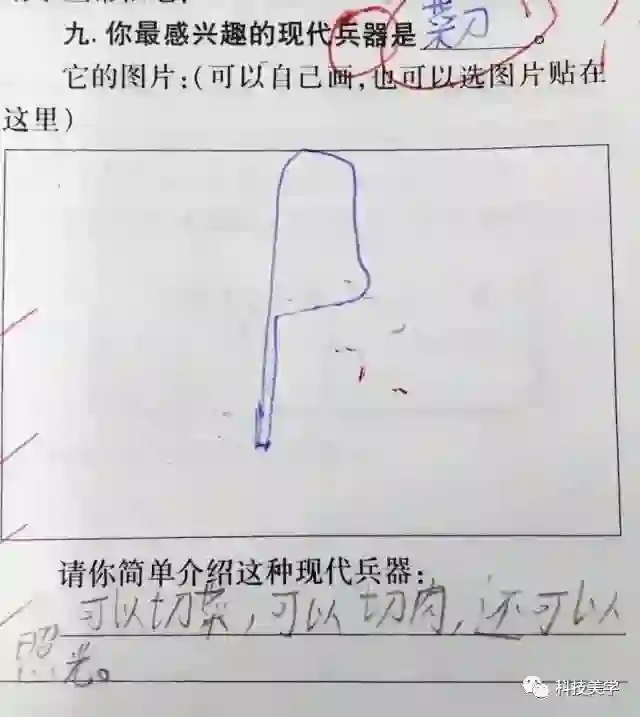 九. 你最感兴趣的现代兵器是 菜刀 。
它的图片:(可以自己画,也可以选图片贴在
这里)
请你简单介绍这种现代兵器:
可以切菜,可以切肉,还可以
照光。
科技美学